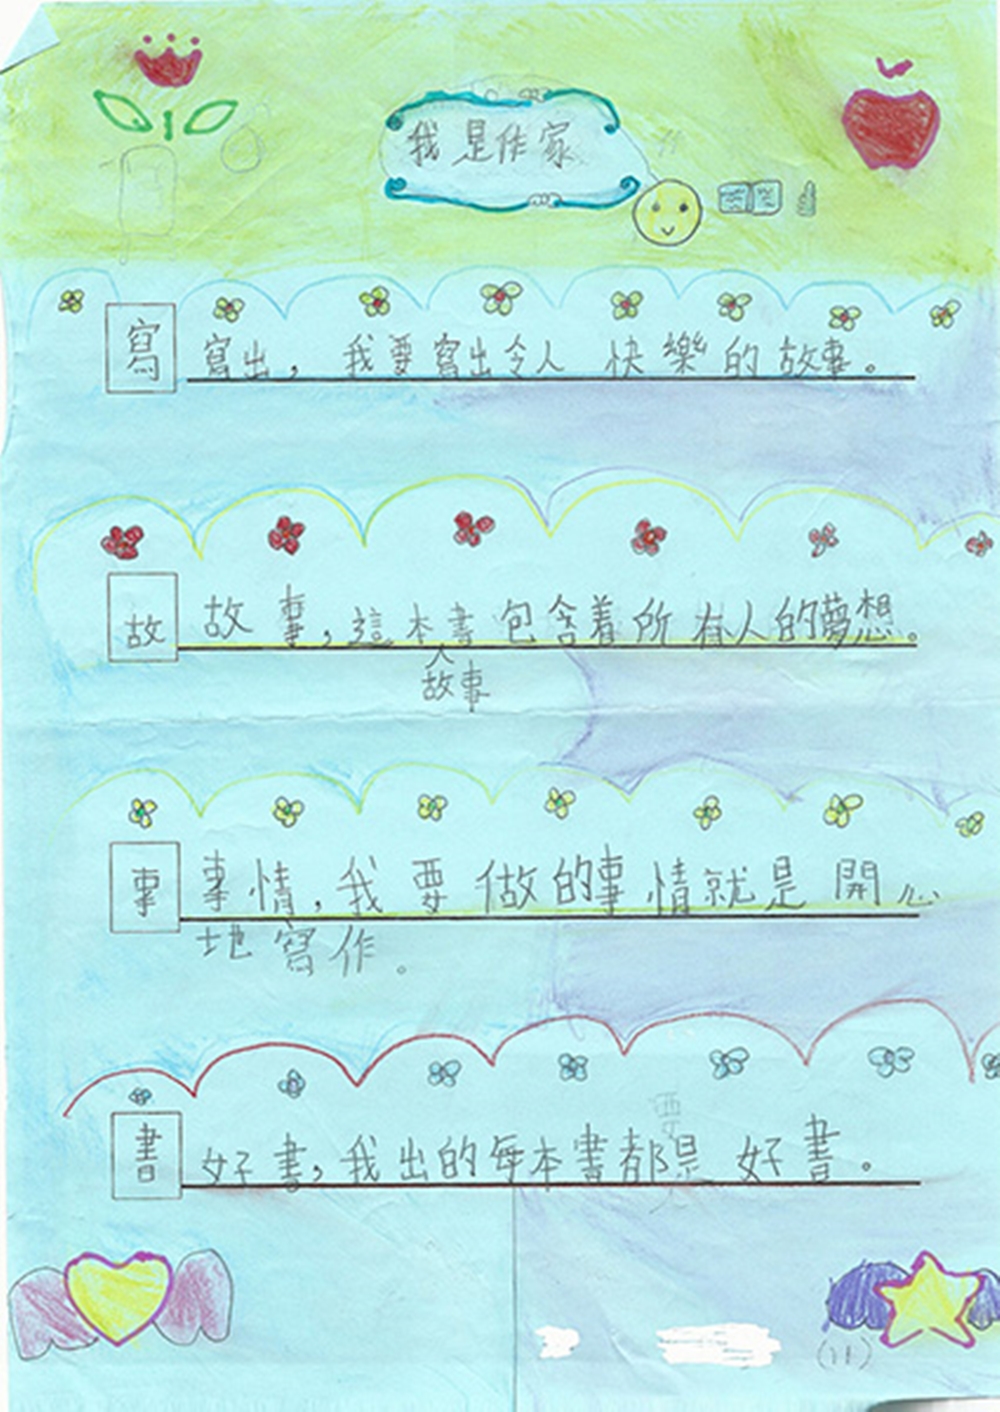 我是作家
寫 寫出，我要寫出令人快樂的故事。
故 故事，這本書包含着所有人的夢想。
故事
事 事情，我要做的事情就是開心
地寫作。
要
書 好書，我出的每本書都是好書。
(11)